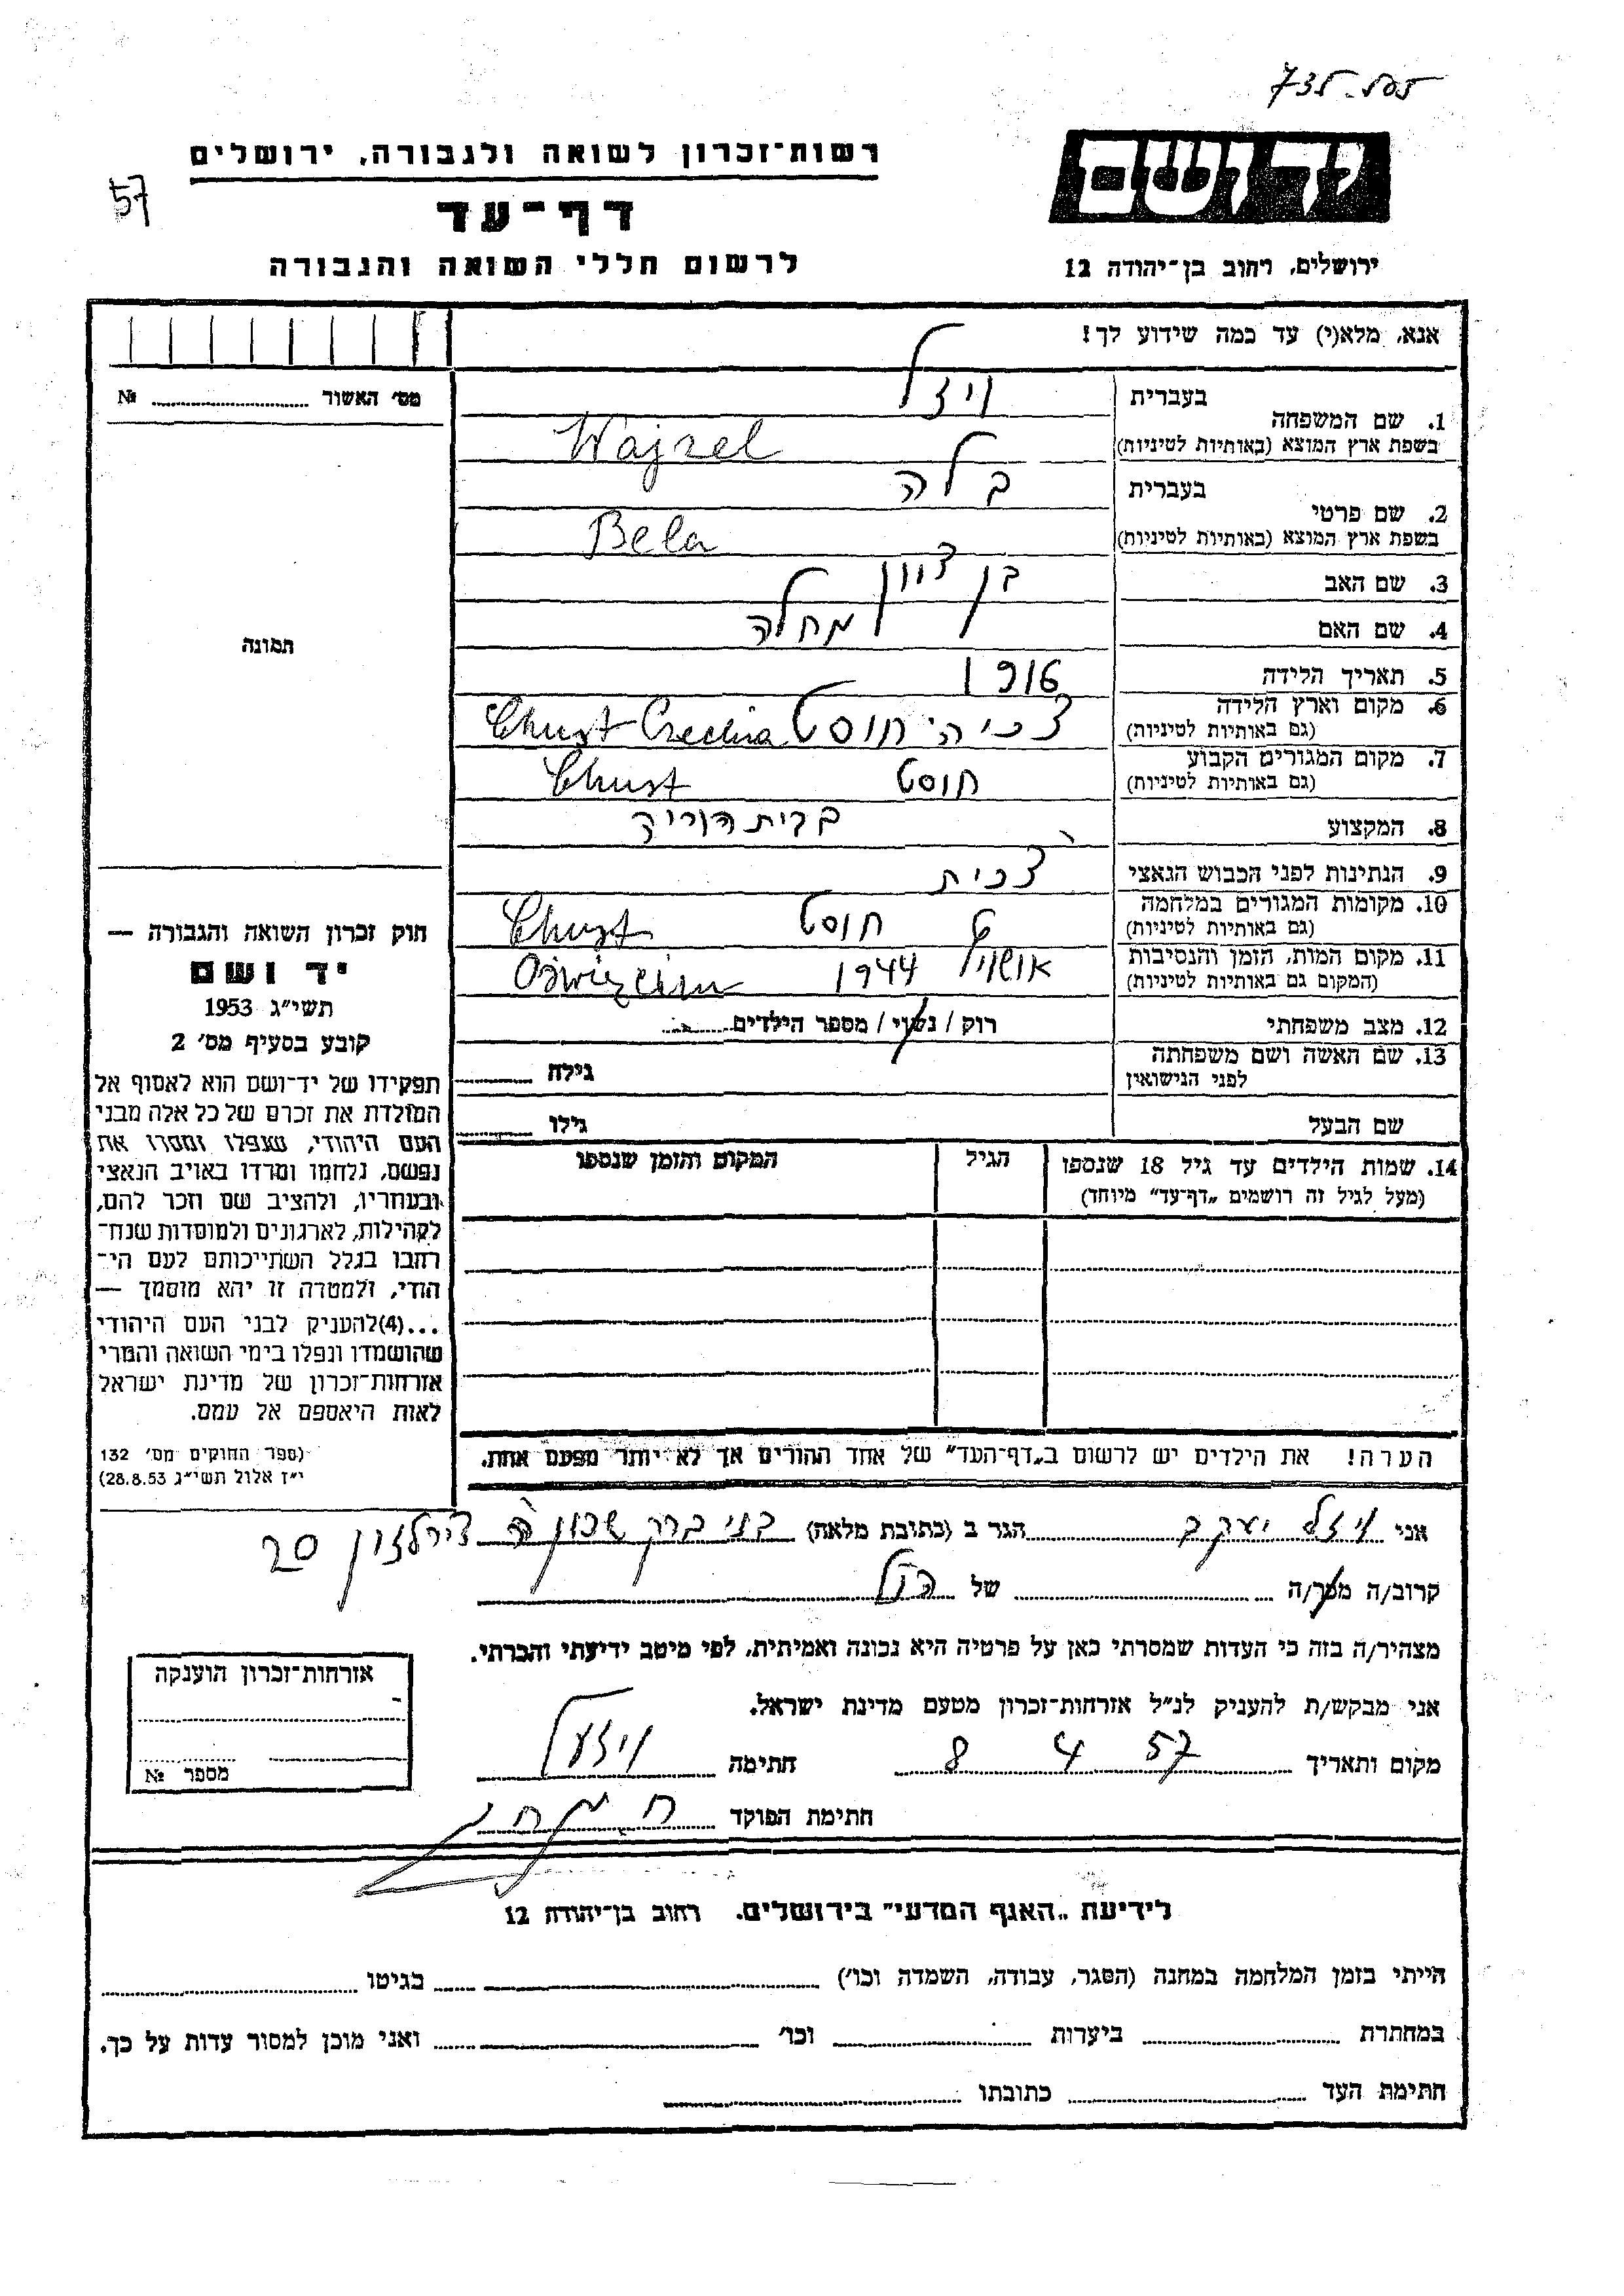 רשות־זכרון לשואה ולגבורה, ירושלים
57
דף־עד
לרשום חללי השואה והגבורה
יד ושם
ירושלים, רחוב בן־יהודה 12
אנא, מלא(י) עד כמה שידוע לך!
מס׳ האשור № 
1. שם המשפחה בעברית ויזל
בשפת ארץ המוצא (באותיות לטיניות) Wajzel
2. שם פרטי בעברית בלה
בשפת ארץ המוצא (באותיות לטיניות) Bela
3. שם האב בן ציון
4. שם האם מחלה
תמונה
5. תאריך הלידה 1916
6. מקום וארץ הלידה צכיה חוסט Chust Czechia
(גם באותיות לטיניות)
7. מקום המגורים הקבוע חוסט Chust
(גם באותיות לטיניות)
8. המקצוע בבית הוריה
9. הנתינות לפני הכבוש הנאצי צכית
10. מקומות המגורים במלחמה חוסט Chust
(גם באותיות לטיניות)
11. מקום המות, הזמן והנסיבות 1944 Oświęcim
(המקום גם באותיות לטיניות)
12. מצב משפחתי רוק / נשוי / מספר הילדים
13. שם האשה ושם משפחתה לפני הנישואין גילה
שם הבעל גילו
14. שמות הילדים עד גיל 18 שנספו הגיל המקום והזמן שנספו
(מעל לגיל זה רושמים „דף־עד" מיוחד)
הערה! את הילדים יש לרשום ב„דף־העד" של אחד ההורים אך לא יותר מפעם אחת.
חוק זכרון השואה והגבורה —
יד ושם
תשי״ג 1953
קובע בסעיף מס׳ 2
תפקידו של יד־ושם הוא לאסוף אל
המולדת את זכרם של כל אלה מבני
העם היהודי, שנפלו ומסרו את
נפשם, נלחמו ומרדו באויב הנאצי
ובעוזריו, ולהציב שם וזכר להם,
לקהילות, לארגונים ולמוסדות שנח־
רבו בגלל השתייכותם לעם הי־
הודי, ולמטרה זו יהא מוסמך —
...(4)להעניק לבני העם היהודי
שהושמדו ונפלו בימי השואה והמרי
אזרחות־זכרון של מדינת ישראל
לאות היאספם אל עמם.
(ספר החוקים מס׳ 132
י״ז אלול תשי״ג 28.8.53)
אני ויזל יעקב הגר ב (כתובת מלאה) בני ברק שכון ה 20
קרוב/ה מכר/ה של הנ״ל
מצהיר/ה בזה כי העדות שמסרתי כאן על פרטיה היא נכונה ואמיתית, לפי מיטב ידיעתי והכרתי.
אני מבקש/ת להעניק לנ״ל אזרחות־זכרון מטעם מדינת ישראל.
מקום ותאריך 8 4 57 חתימה
חתימת הפוקד
אזרחות־זכרון הוענקה
מספר №
לידיעת „האגף המדעי" בירושלים. רחוב בן־יהודה 12
הייתי בזמן המלחמה במחנה (הסגר, עבודה, השמדה וכו׳) בגיטו
במחתרת ביערות וכו׳ ואני מוכן למסור עדות על כך.
חתימת העד כתובתו